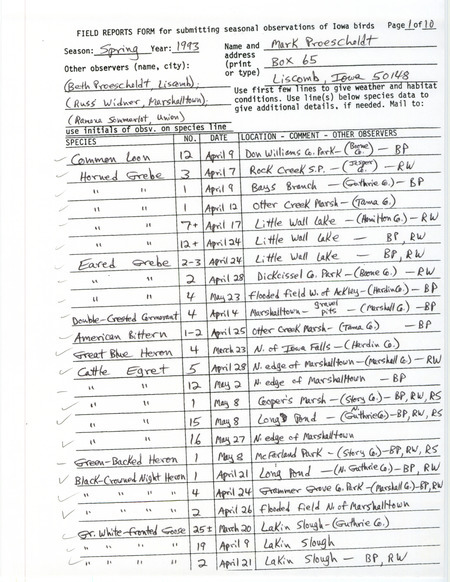 FIELD REPORTS FORM for submitting seasonal observations of Iowa birds Page 1 of 10
Season: Spring Year: 1993 Name and Mark Proescholdt
address
Other observers (name, city): (print Box 65
or type)
(Beth Proescholdt, Liscomb); Liscomb, Iowa 50148
(Russ Widner, Marshalltown); Use first few lines to give weather and habitat
conditions. Use line(s) below species data to
(Ramona Sommerlot, Union) give additional details, if needed. Mail to:
use initials of obsv. on species line
SPECIES NO. DATE LOCATION - COMMENT - OTHER OBSERVERS
Common Loon 12 April 9 Don Williams Co. Park - (Boone Co.) - BP
Horned Grebe 3 April 7 Rock Creek S.P. - (Jasper Co.) - RW
" " 1 April 9 Bays Branch - (Guthrie Co.) - BP
" " 1 April 12 Otter Creek Marsh - (Tama Co.)
" " 7+ April 17 Little Wall Lake - (Hamilton Co.) - RW
" " 12+ April 24 Little Wall Lake - BP, RW
Eared Grebe 2-3 April 24 Little Wall Lake - BP, RW
" " 2 April 28 Dickcissel Co. Park - (Boone Co.) - RW
" " 4 May 23 flooded field W. of Ackley - (Hardin Co.) - BP
Double-Crested Cormorant 4 April 4 Marshalltown - gravel pits - (Marshall Co.) - BP
American Bittern 1-2 April 25 Otter Creek Marsh - (Tama Co.) - BP
Great Blue Heron 4 March 23 N. of Iowa Falls - (Hardin Co.)
Cattle Egret 5 April 28 N. edge of Marshalltown - (Marshall Co.) - RW
" " 12 May 2 N. edge of Marshalltown - BP
" " 1 May 8 Cooper's Marsh - (Story Co.) - BP, RW, RS
" " 15 May 8 Long Pond - (N. Guthrie Co.) - BP, RW, RS
" " 16 May 27 N. edge of Marshalltown
Green-Backed Heron 1 May 8 McFarland Park - (Story Co.) - BP, RW, RS
Black-Crowned Night Heron 1 April 21 Long Pond - (N. Guthrie Co.) - BP, RW
" " " 4 April 24 Grammer Grove Co. Park - (Marshall Co.) - BP, RW
" " " 2 April 26 flooded field N. of Marshalltown
Gr. White-fronted Goose 25± March 20 Lakin Slough - (Guthrie Co.)
" " " 19 April 9 Lakin Slough
" " " 2 April 21 Lakin Slough - BP, RW